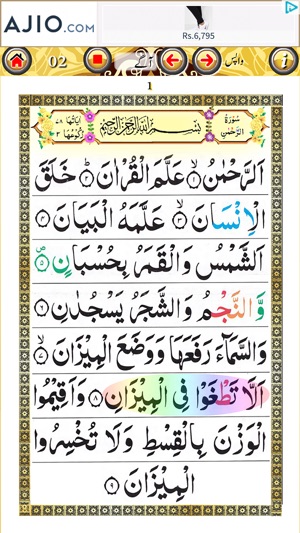 AJIO.COM
Rs.6,795
02
آگے
واپس
1
سُوْرَةُ الرَّحْمٰنِ
بِسْمِ اللّٰهِ الرَّحْمٰنِ الرَّحِيْمِ
اٰيَاتُهَا ٧٨
رُكُوْعُهَا ٣
اَلرَّحْمٰنُ ۙ﴿۱﴾ عَلَّمَ الْقُرْاٰنَ ؕ﴿۲﴾ خَلَقَ
الْاِنْسَانَ ۙ﴿۳﴾ عَلَّمَهُ الْبَيَانَ ﴿۴﴾
اَلشَّمْسُ وَ الْقَمَرُ بِحُسْبَانٍ ﴿۵﴾
وَّ النَّجْمُ وَ الشَّجَرُ يَسْجُدٰنِ ﴿۶﴾
وَ السَّمَآءَ رَفَعَهَا وَ وَضَعَ الْمِيْزَانَ ۙ﴿۷﴾
اَلَّا تَطْغَوْا فِي الْمِيْزَانِ ﴿۸﴾ وَ اَقِيْمُوا
الْوَزْنَ بِالْقِسْطِ وَ لَا تُخْسِرُوا
الْمِيْزَانَ ﴿۹﴾